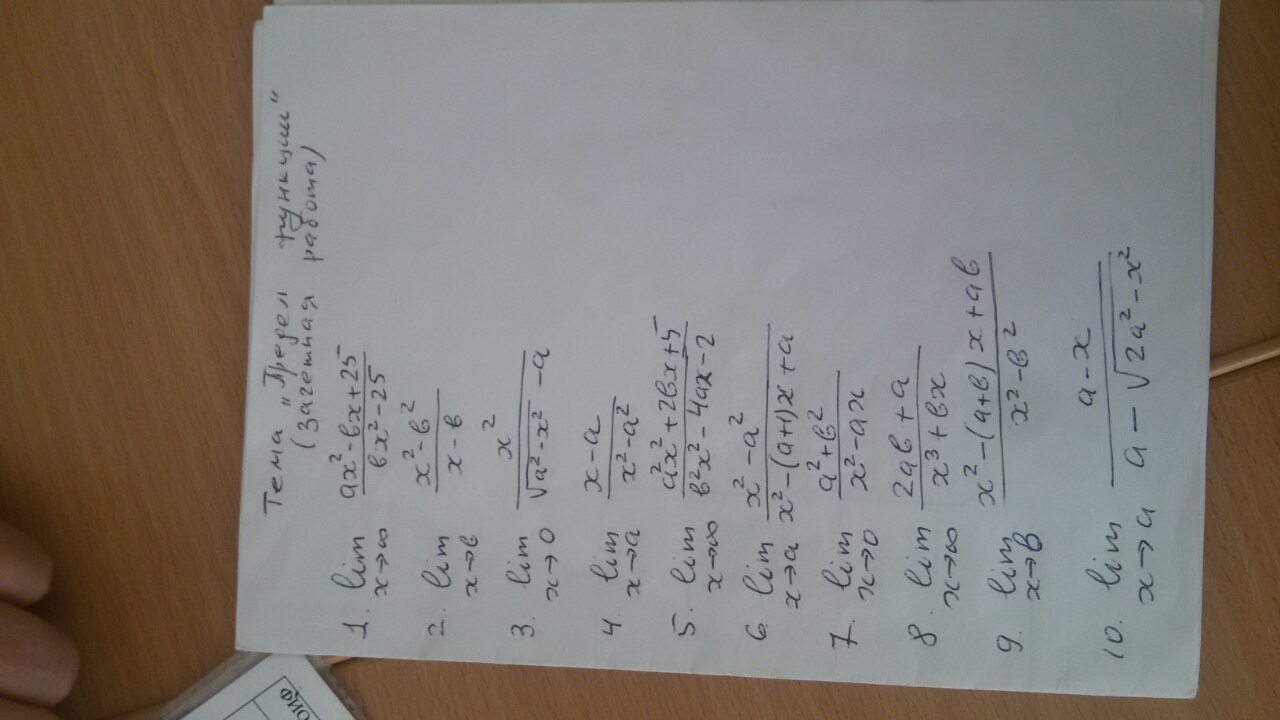 Тема "Предел функции"
(зачетная работа)
1. lim x→∞ (ax² - bx + 25)/(bx² - 25)
2. lim x→b (x² - b²)/(x - b)
3. lim x→0 x²/(√(a² - x²) - a)
4. lim x→a (x - a)/(x² - a²)
5. lim x→∞ (a²x² + 2bx + 5)/(b²x² - 4ax - 2)
6. lim x→a (x² - a²)/(x² - (a+1)x + a)
7. lim x→0 (a² + b²)/(x² - ax)
8. lim x→∞ (2ab + a)/(x³ + bx)
9. lim x→b (x² - (a+b)x + ab)/(x² - b²)
10. lim x→a (a - x)/(a - √(2a² - x²))